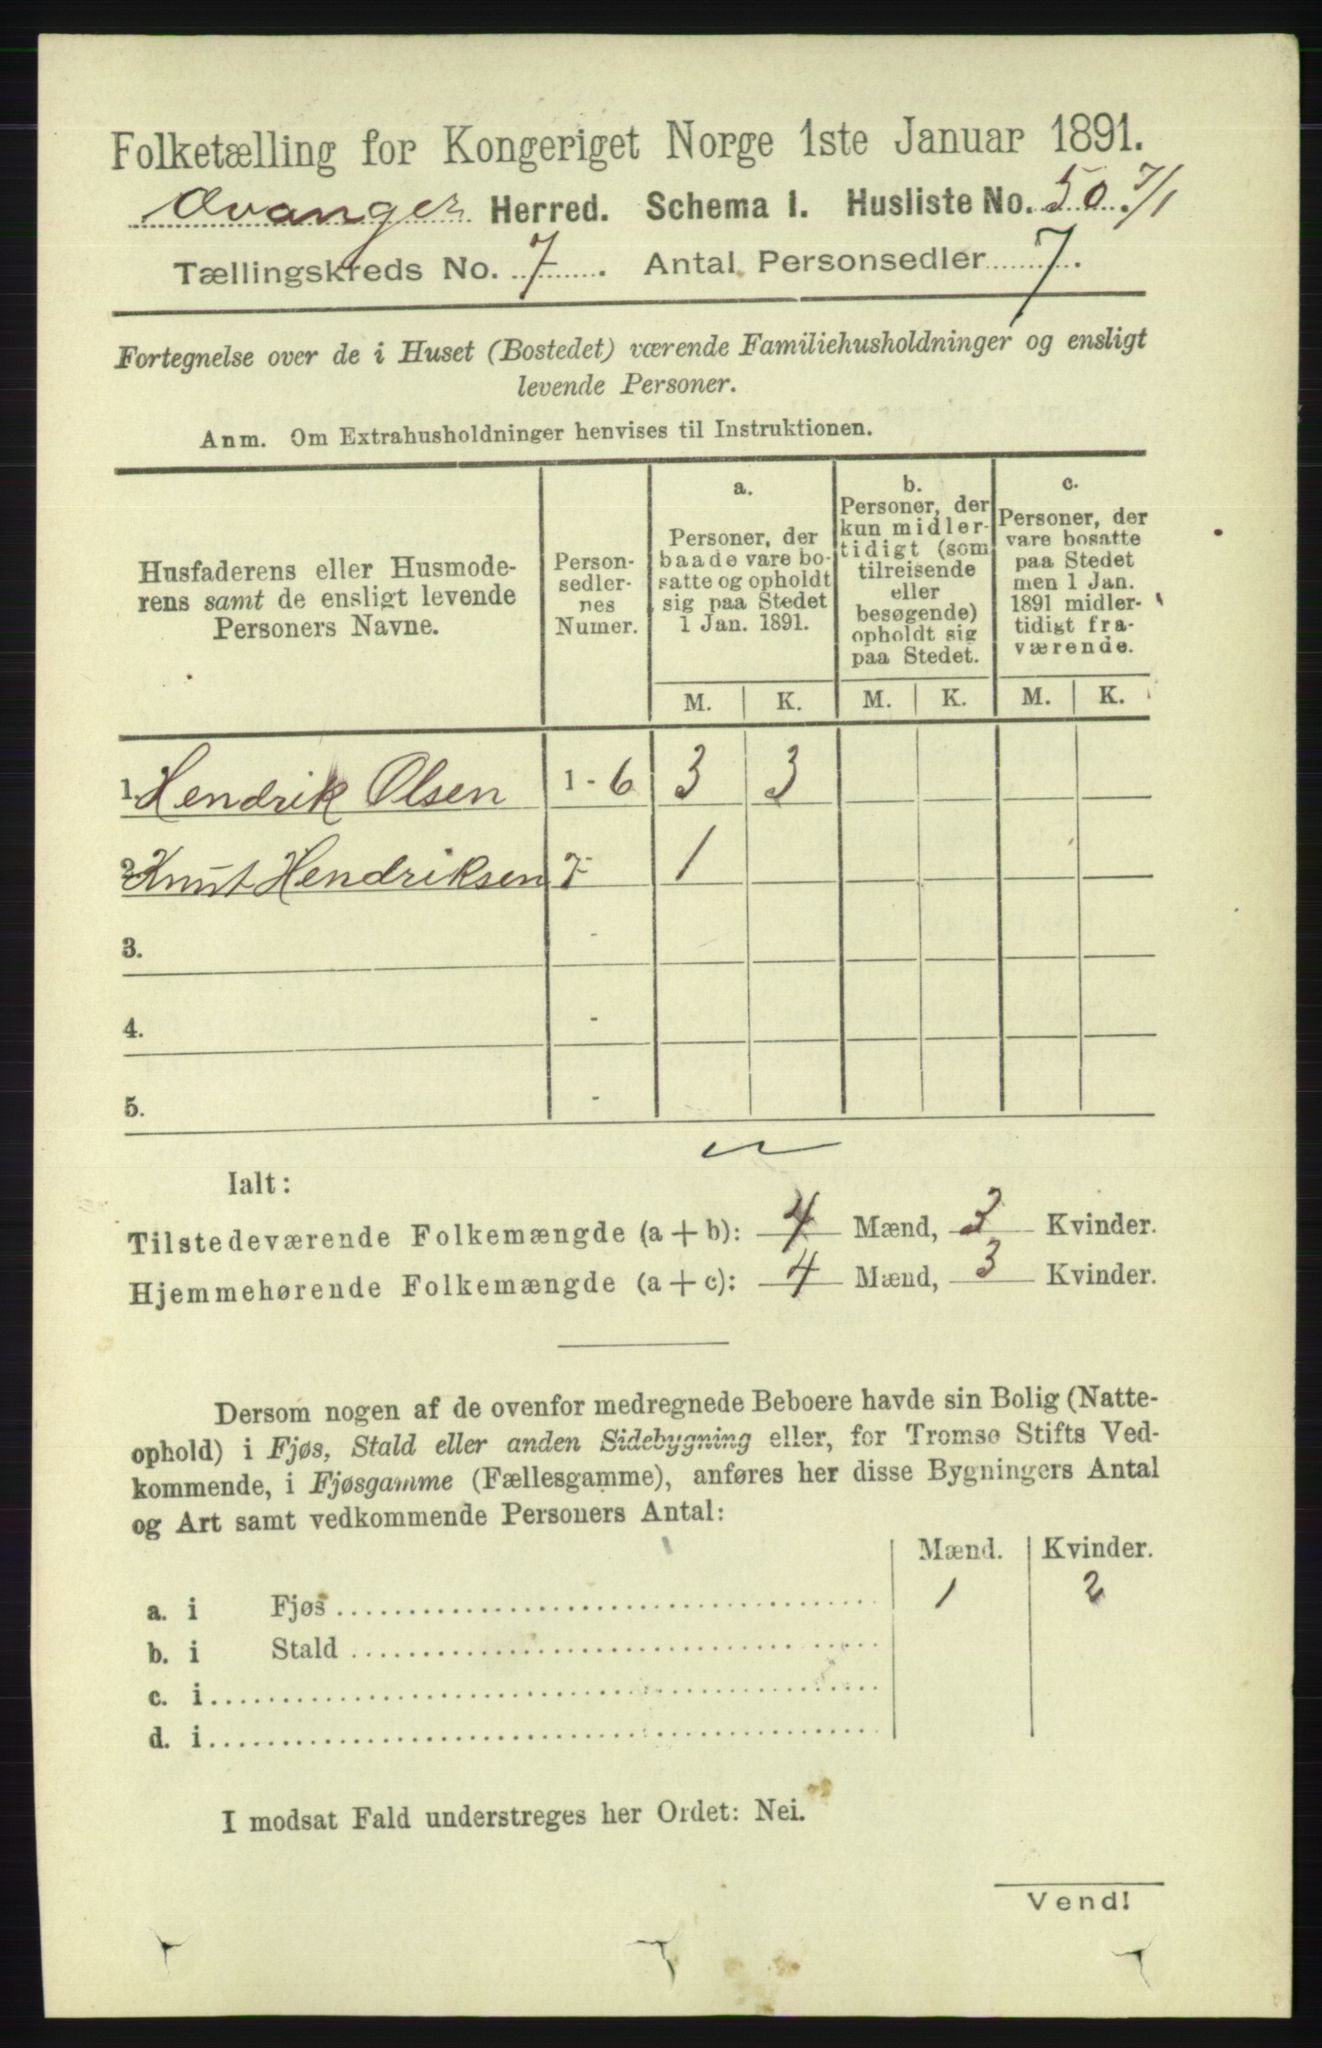 Folketælling for Kongeriget Norge 1ste Januar 1891.
Evanger Herred. Schema I. Husliste No. 50. 7/1
Tællingskreds No. 7. Antal Personsedler 7.
Fortegnelse over de i Huset (Bostedet) værende Familiehusholdninger og ensligt
levende Personer.
Anm. Om Extrahusholdninger henvises til Instruktionen.
Husfaderens eller Husmode-
rens samt de ensligt levende
Personers Navne.
Person-
sedler-
nes
Numer.
a.
Personer, der
baade vare bo-
satte og opholdt
sig paa Stedet
1 Jan. 1891.
b.
Personer, der
kun midler-
tidigt (som
tilreisende
eller
besøgende)
opholdt sig
paa Stedet.
c.
Personer, der
vare bosatte
paa Stedet
men 1 Jan.
1891 midler-
tidigt fra-
værende.
M. K. M. K. M. K.
1. Hendrik Olsen 1 - 6 3 3
2. Knut Hendriksen 7 - 1
3. -
4. -
5. -
Ialt:
Tilstedeværende Folkemængde (a + b): 4 Mænd, 3 Kvinder.
Hjemmehørende Folkemængde (a + c): 4 Mænd, 3 Kvinder.
Dersom nogen af de ovenfor medregnede Beboere havde sin Bolig (Natte-
ophold) i Fjøs, Stald eller anden Sidebygning eller, for Tromsø Stifts Ved-
kommende, i Fjøsgamme (Fællesgamme), anføres her disse Bygningers Antal
og Art samt vedkommende Personers Antal:
Mænd. Kvinder.
a. i Fjøs 1 2
b. i Stald
c. i
d. i
I modsat Fald understreges her Ordet: Nei.
Vend!